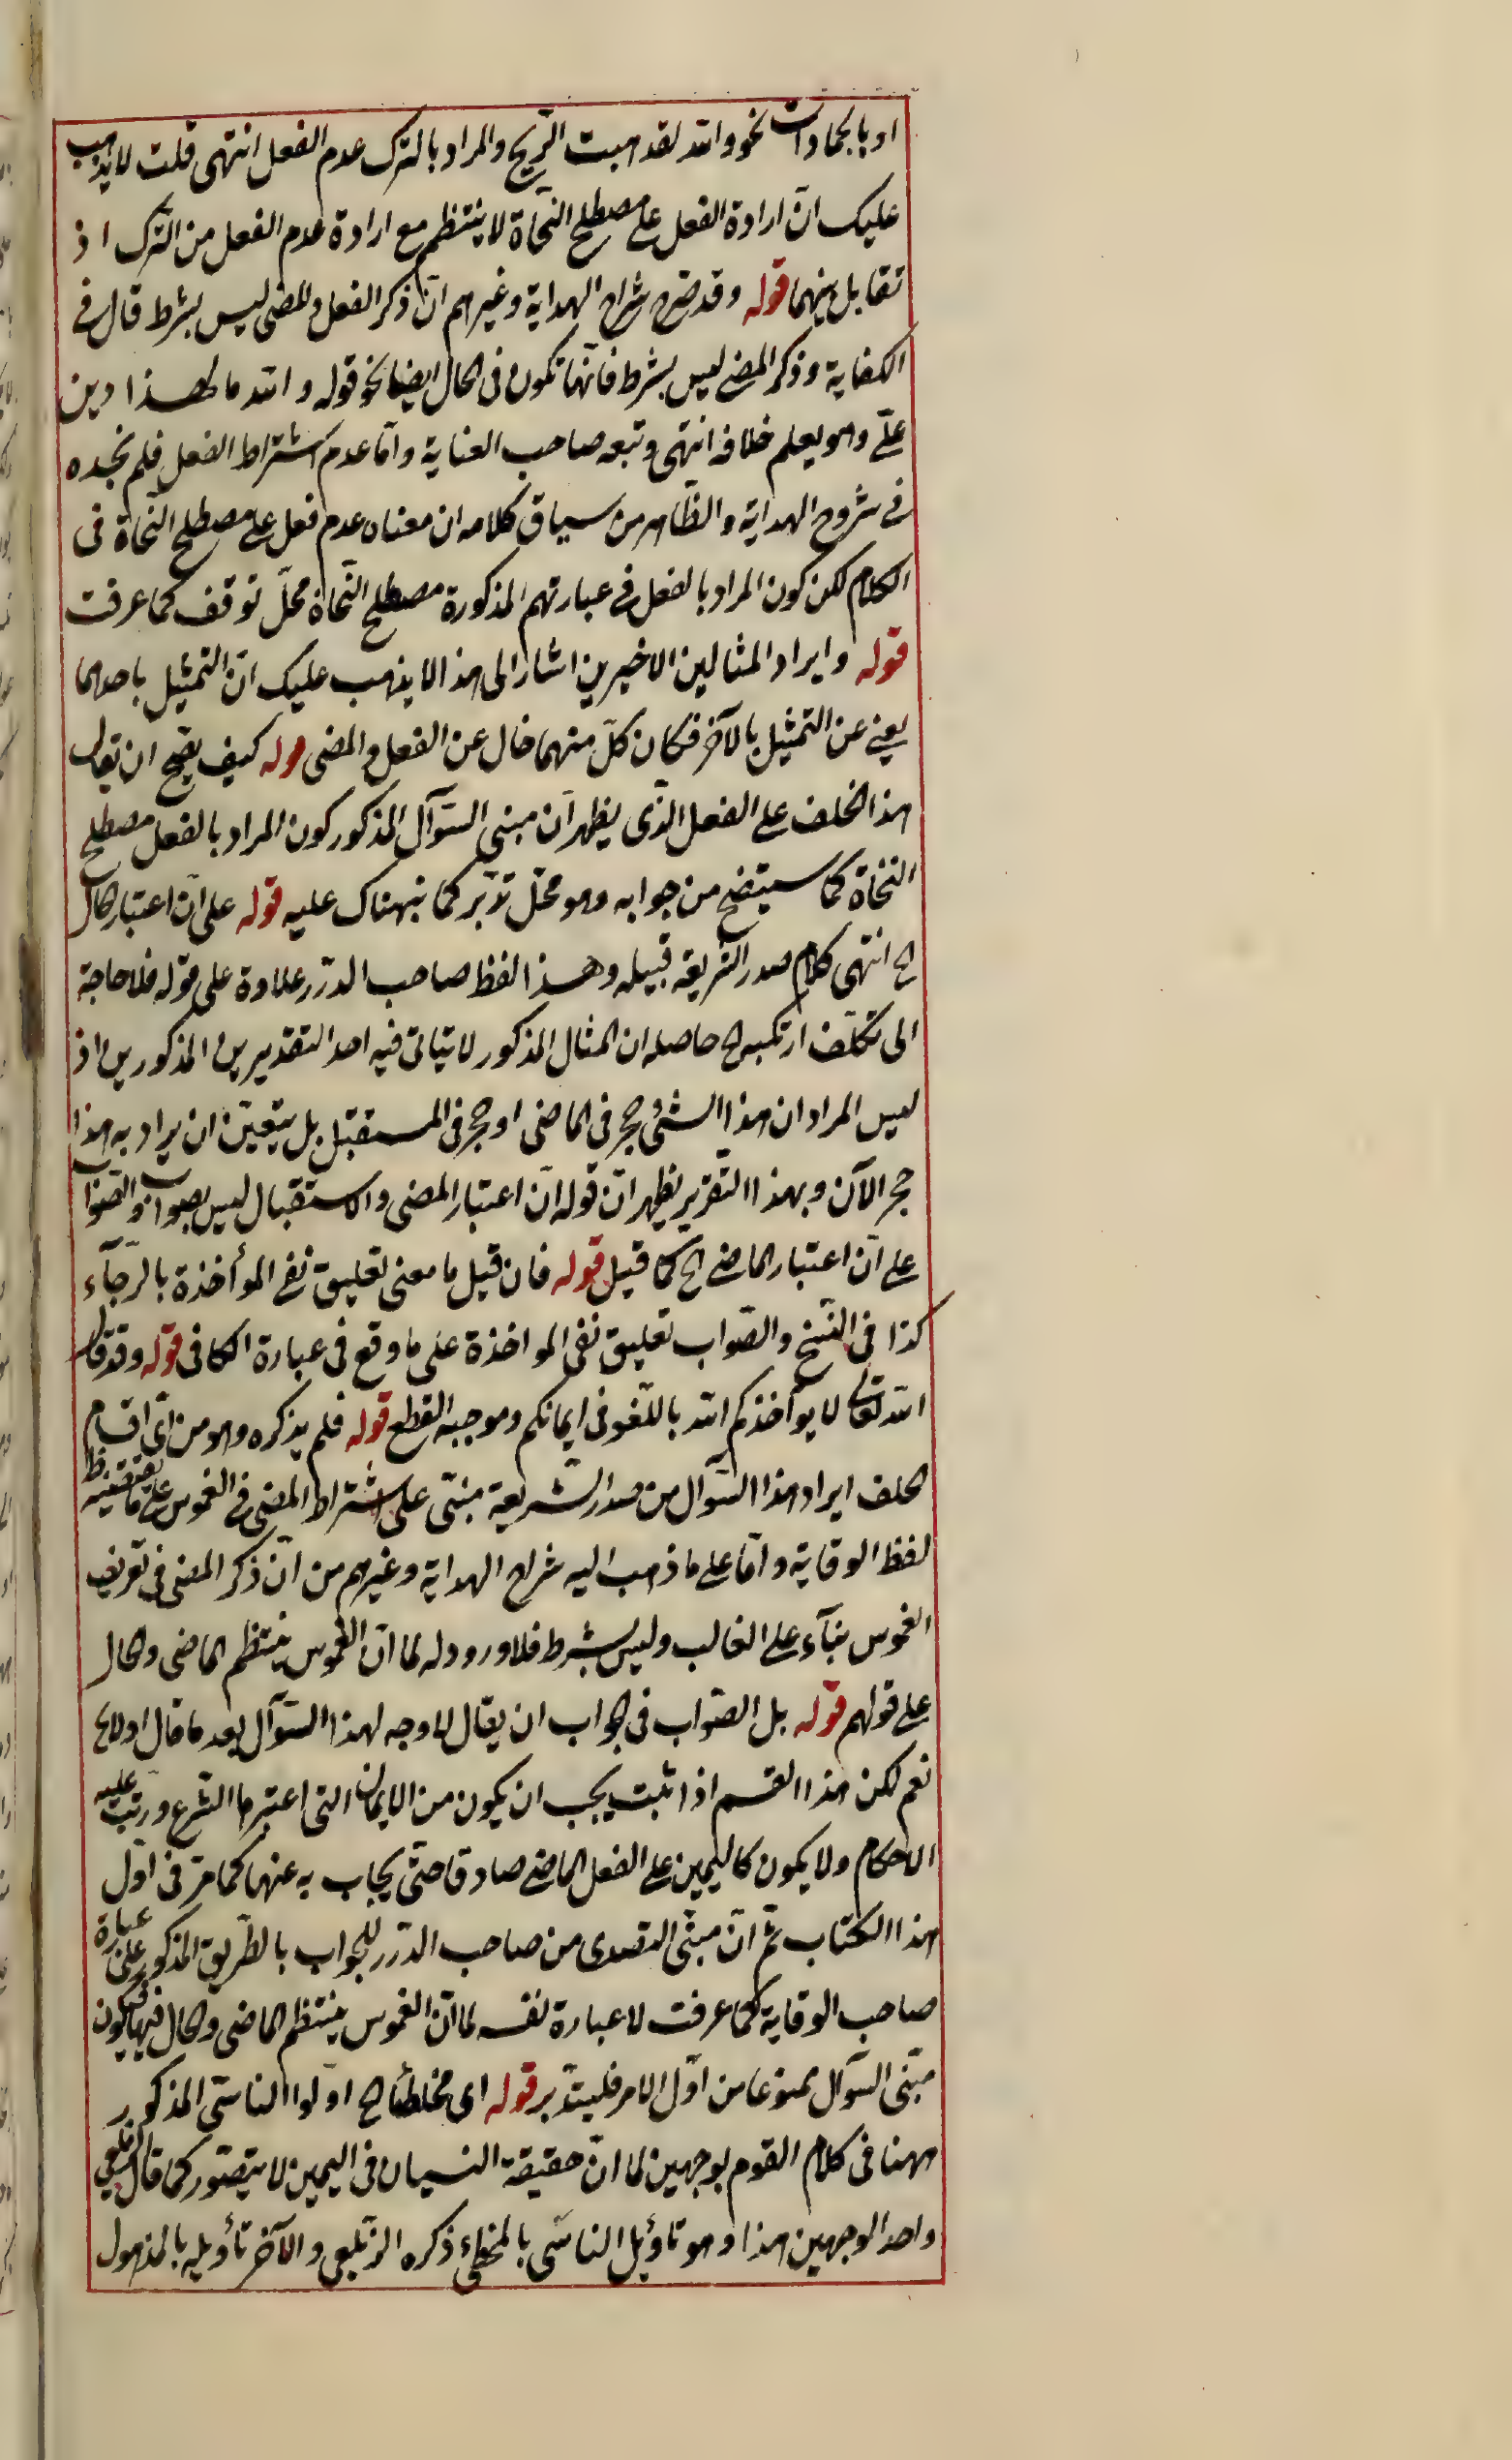 او بالجمادات نحو والله لقد هبت الريح والمراد بالترك عدم الفعل انتهى قلت لا يذهب
عليك انّ ارادة الفعل على مصطلح النّحاة لا ينتظم مع ارادة عدم الفعل من الترك اذ
تقابل بينهما قوله وقد صرّح شراح الهداية وغيرهم انّ ذكر الفعل والمضى ليس بشرط قال فى
الكفاية وذكر المضى ليس بشرط فانّها تكون فى الحال ايضا نحو قوله والله ما لهذا دين
علىّ وهو يعلم خلافه انتهى وتبعه صاحب العناية وامّا عدم اشتراط الفعل فلم نجده
فى شروح الهداية والظّاهر من سياق كلامه ان معناه عدم فعل على مصطلح النّحاة فى
الكلام لكن كون المراد بالفعل فى عبارتهم المذكورة مصطلح النّحاة محلّ توقف كما عرفت
قوله وايراد المثالين الاخيرين اشار الى هذا لا يذهب عليك انّ التمثيل باحدهما
يغنى عن التمثيل بالآخر فكان كلّ منهما خال عن الفعل والمضى قوله كيف يصح ان يقال
هذا الحلف على الفعل الذّى يظهر انّ مبنى السّوآل المذكور كون المراد بالفعل مصطلح
النحاة كما سيتضح من جوابه وهو محلّ تدبّر كما نبهناك عليه قوله على انّ اعتبار الحال
الح انتهى كلام صدر الشريعة قبيله وهذا لفظ صاحب الدرر علاوة على قوله فلا حاجة
الى تكلّف ارتكبه الح حاصله ان المثال المذكور لا يتاتى فيه احد التقديرين المذكورين اذ
ليس المراد ان هذا الشئ حجر فى الماضى او حجر فى المستقبل بل يتعيّن ان يراد به هذا
حجر الآن وبهذا التقرير يظهر انّ قوله انّ اعتبار المضى والاستقبال ليس بصواب والصّواب
على انّ اعتبار الماضى الح كما قيل قوله فان قيل ما معنى تعليق نفى المؤاخذة بالرجآء
كذا فى النسخ والصّواب تعليق نفى المواخذة على ما وقع فى عبارة الكافى قوله وقد قال
الله تعالى لا يؤاخذكم الله باللّغو فى ايمانكم وموجبه القطع قوله فلم يذكره وهو من اىّ اقسام
الحلف ايراد هذا السّوآل من صدر الشّريعة مبنىّ على اشتراط المضى فى الغموس على ما يقتضيه
لفظ الوقاية وامّا على ما ذهب اليه شراح الهداية وغيرهم من انّ ذكر المضى فى تعريف
الغموس بنآء على الغالب وليس بشرط فلا ورود له لما انّ الغموس ينتظم الماضى والحال
على قولهم قوله بل الصّواب فى الجواب ان يقال لا وجه لهذا السّوآل بعد ما قال اولا الح
نعم لكن هذا القسم اذا ثبت يجب ان يكون من الايمان التى اعتبرها الشّرع ورتب عليه
الاحكام ولا يكون كاليمين على الفعل الماضى صادقا حتّى يجاب به عنها كما مرّ فى اوّل
هذا الكتاب ثمّ انّ مبنى التصدى من صاحب الدّرر للجواب بالطّريق المذكور على عبارة
صاحب الوقاية كما عرفت لا عبارة نفسه لما انّ الغموس ينتظم الماضى والحال فيها فيكون
مبنى السّوآل ممنوعا من اوّل الامر فليتدّبر قوله اى مخطئا الح اوّلوا الناسى المذكور
ههنا فى كلام القوم بوجهين لما انّ حقيقة النسيان فى اليمين لا يتصوّر كما قال الزيلعى
واحد الوجهين هذا وهو تاويل الناسى بالمخطئ ذكره الزيلعى والآخر تأويله بالمذهول